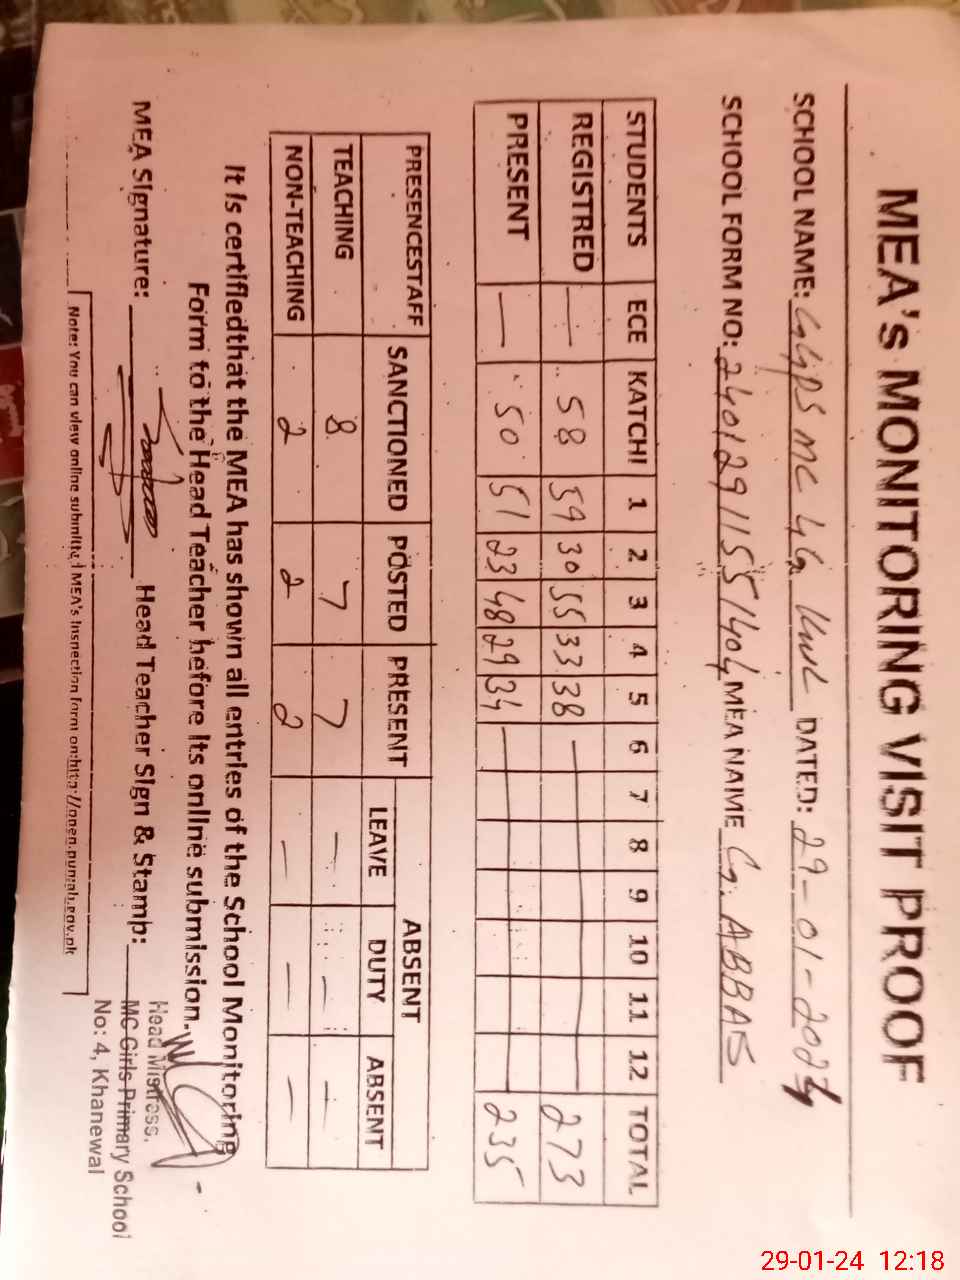 MEA's MONITORING VISIT PROOF
SCHOOL NAME: GGPS MC 4 KWL DATED: 29-01-2024
SCHOOL FORM NO: 24012911551404 MEA NAME G. ABBAS
STUDENTS ECE KATCHI 1 2 3 4 5 6 7 8 9 10 11 12 TOTAL
REGISTRED — 58 59 30 55 33 38 — 273
PRESENT — 50 51 23 48 29 34 — 235
PRESENCESTAFF SANCTIONED POSTED PRESENT ABSENT
LEAVE DUTY ABSENT
TEACHING 8 7 7 — — —
NON-TEACHING 2 2 2 — — —
It is certifiedthat the MEA has shown all entries of the School Monitoring
Form to the Head Teacher before its online submission.
MEA Signature: Head Teacher Sign & Stamp:
Head Mistress,
MC Girls Primary School
No: 4, Khanewal
Note: You can view online submitted MEA's Inspection form on:http://open.punjab.gov.pk
29-01-24 12:18